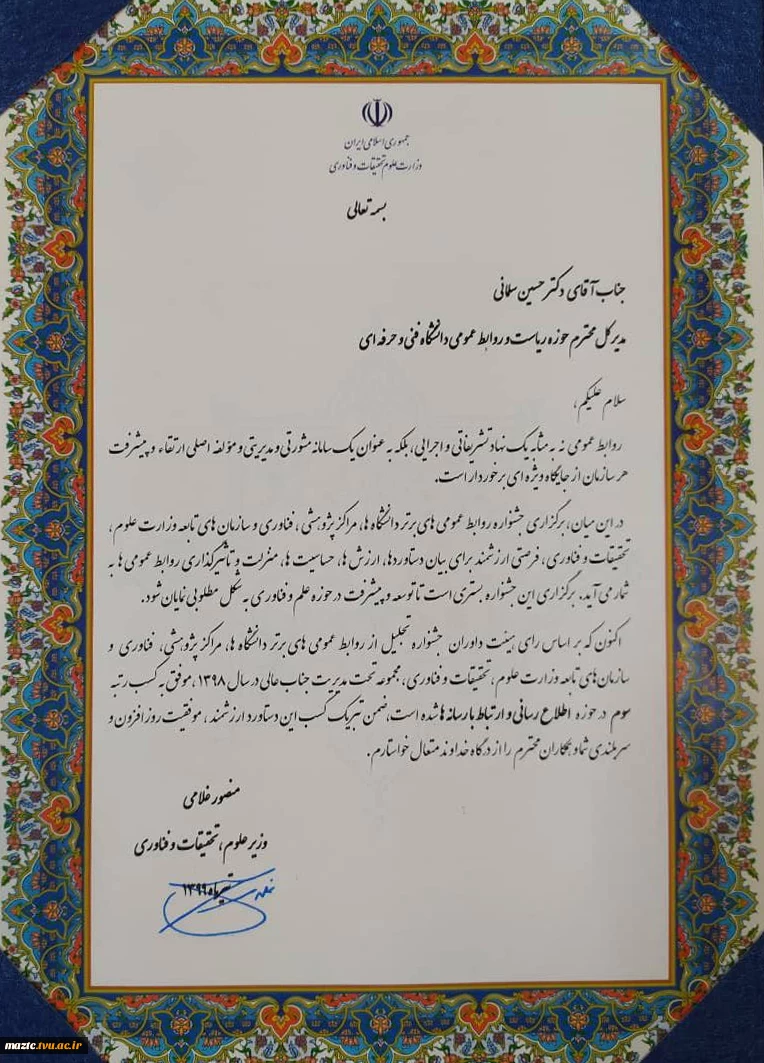 جمهوری اسلامی ایران
وزارت علوم تحقیقات و فناوری
بسمه تعالی
جناب آقای دکتر حسین سلمانی
مدیر کل محترم حوزه ریاست و روابط عمومی دانشگاه فنی و حرفه ای
سلام علیکم،
روابط عمومی نه به مثابه یک نهاد تشریفاتی و اجرایی، بلکه به عنوان یک سامانه مشورتی و مدیریتی و مؤلفه اصلی ارتقاء و پیشرفت
هر سازمان از جایگاه ویژه ای برخوردار است.
در این میان، برگزاری جشنواره روابط عمومی های برتر دانشگاه ها، مراکز پژوهشی، فناوری و سازمان های تابعه وزارت علوم،
تحقیقات و فناوری، فرصتی ارزشمند برای بیان دستاوردها، ارزش ها، حساسیت ها، منزلت و تأثیرگذاری روابط عمومی ها به
شمار می آید. برگزاری این جشنواره بستری است تا توسعه و پیشرفت در حوزه علم و فناوری به شکل مطلوبی نمایان شود.
اکنون که بر اساس رای هیئت داوران جشنواره تجلیل از روابط عمومی های برتر دانشگاه ها، مراکز پژوهشی، فناوری و
سازمان های تابعه وزارت علوم، تحقیقات و فناوری، مجموعه تحت مدیریت جناب عالی در سال ۱۳۹۸، موفق به کسب رتبه
سوم در حوزه اطلاع رسانی و ارتباط با رسانه ها شده است، ضمن تبریک کسب این دستاورد ارزشمند، موفقیت روز افزون و
سربلندی شما و همکاران محترم را از درگاه خداوند متعال خواستارم.
منصور غلامی
وزیر علوم، تحقیقات و فناوری
تیرماه ۱۳۹۹
maztc.tvu.ac.ir